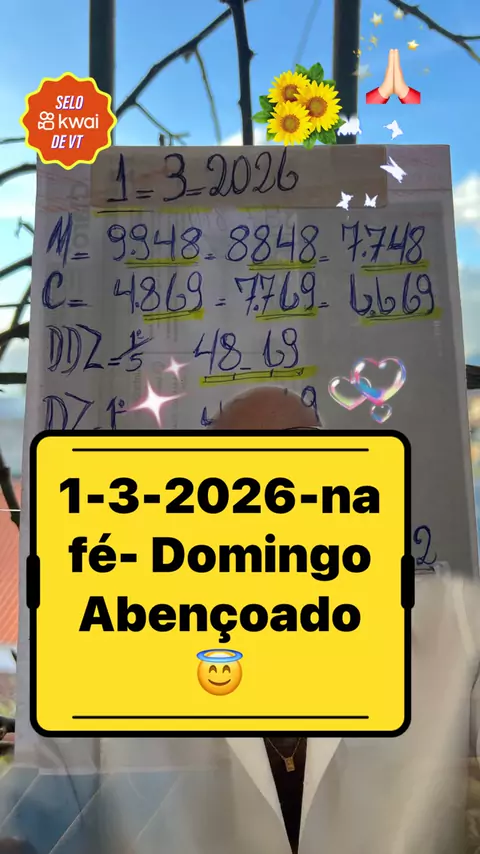 SELO
kwai
DE VT
1=3=2026
M= 9.948= 8848= 7.748
C= 4.869= 7.769= 6.669
DDZ=1º/5 48-69
DZ=1º
1-3-2026-na
fé- Domingo
Abençoado